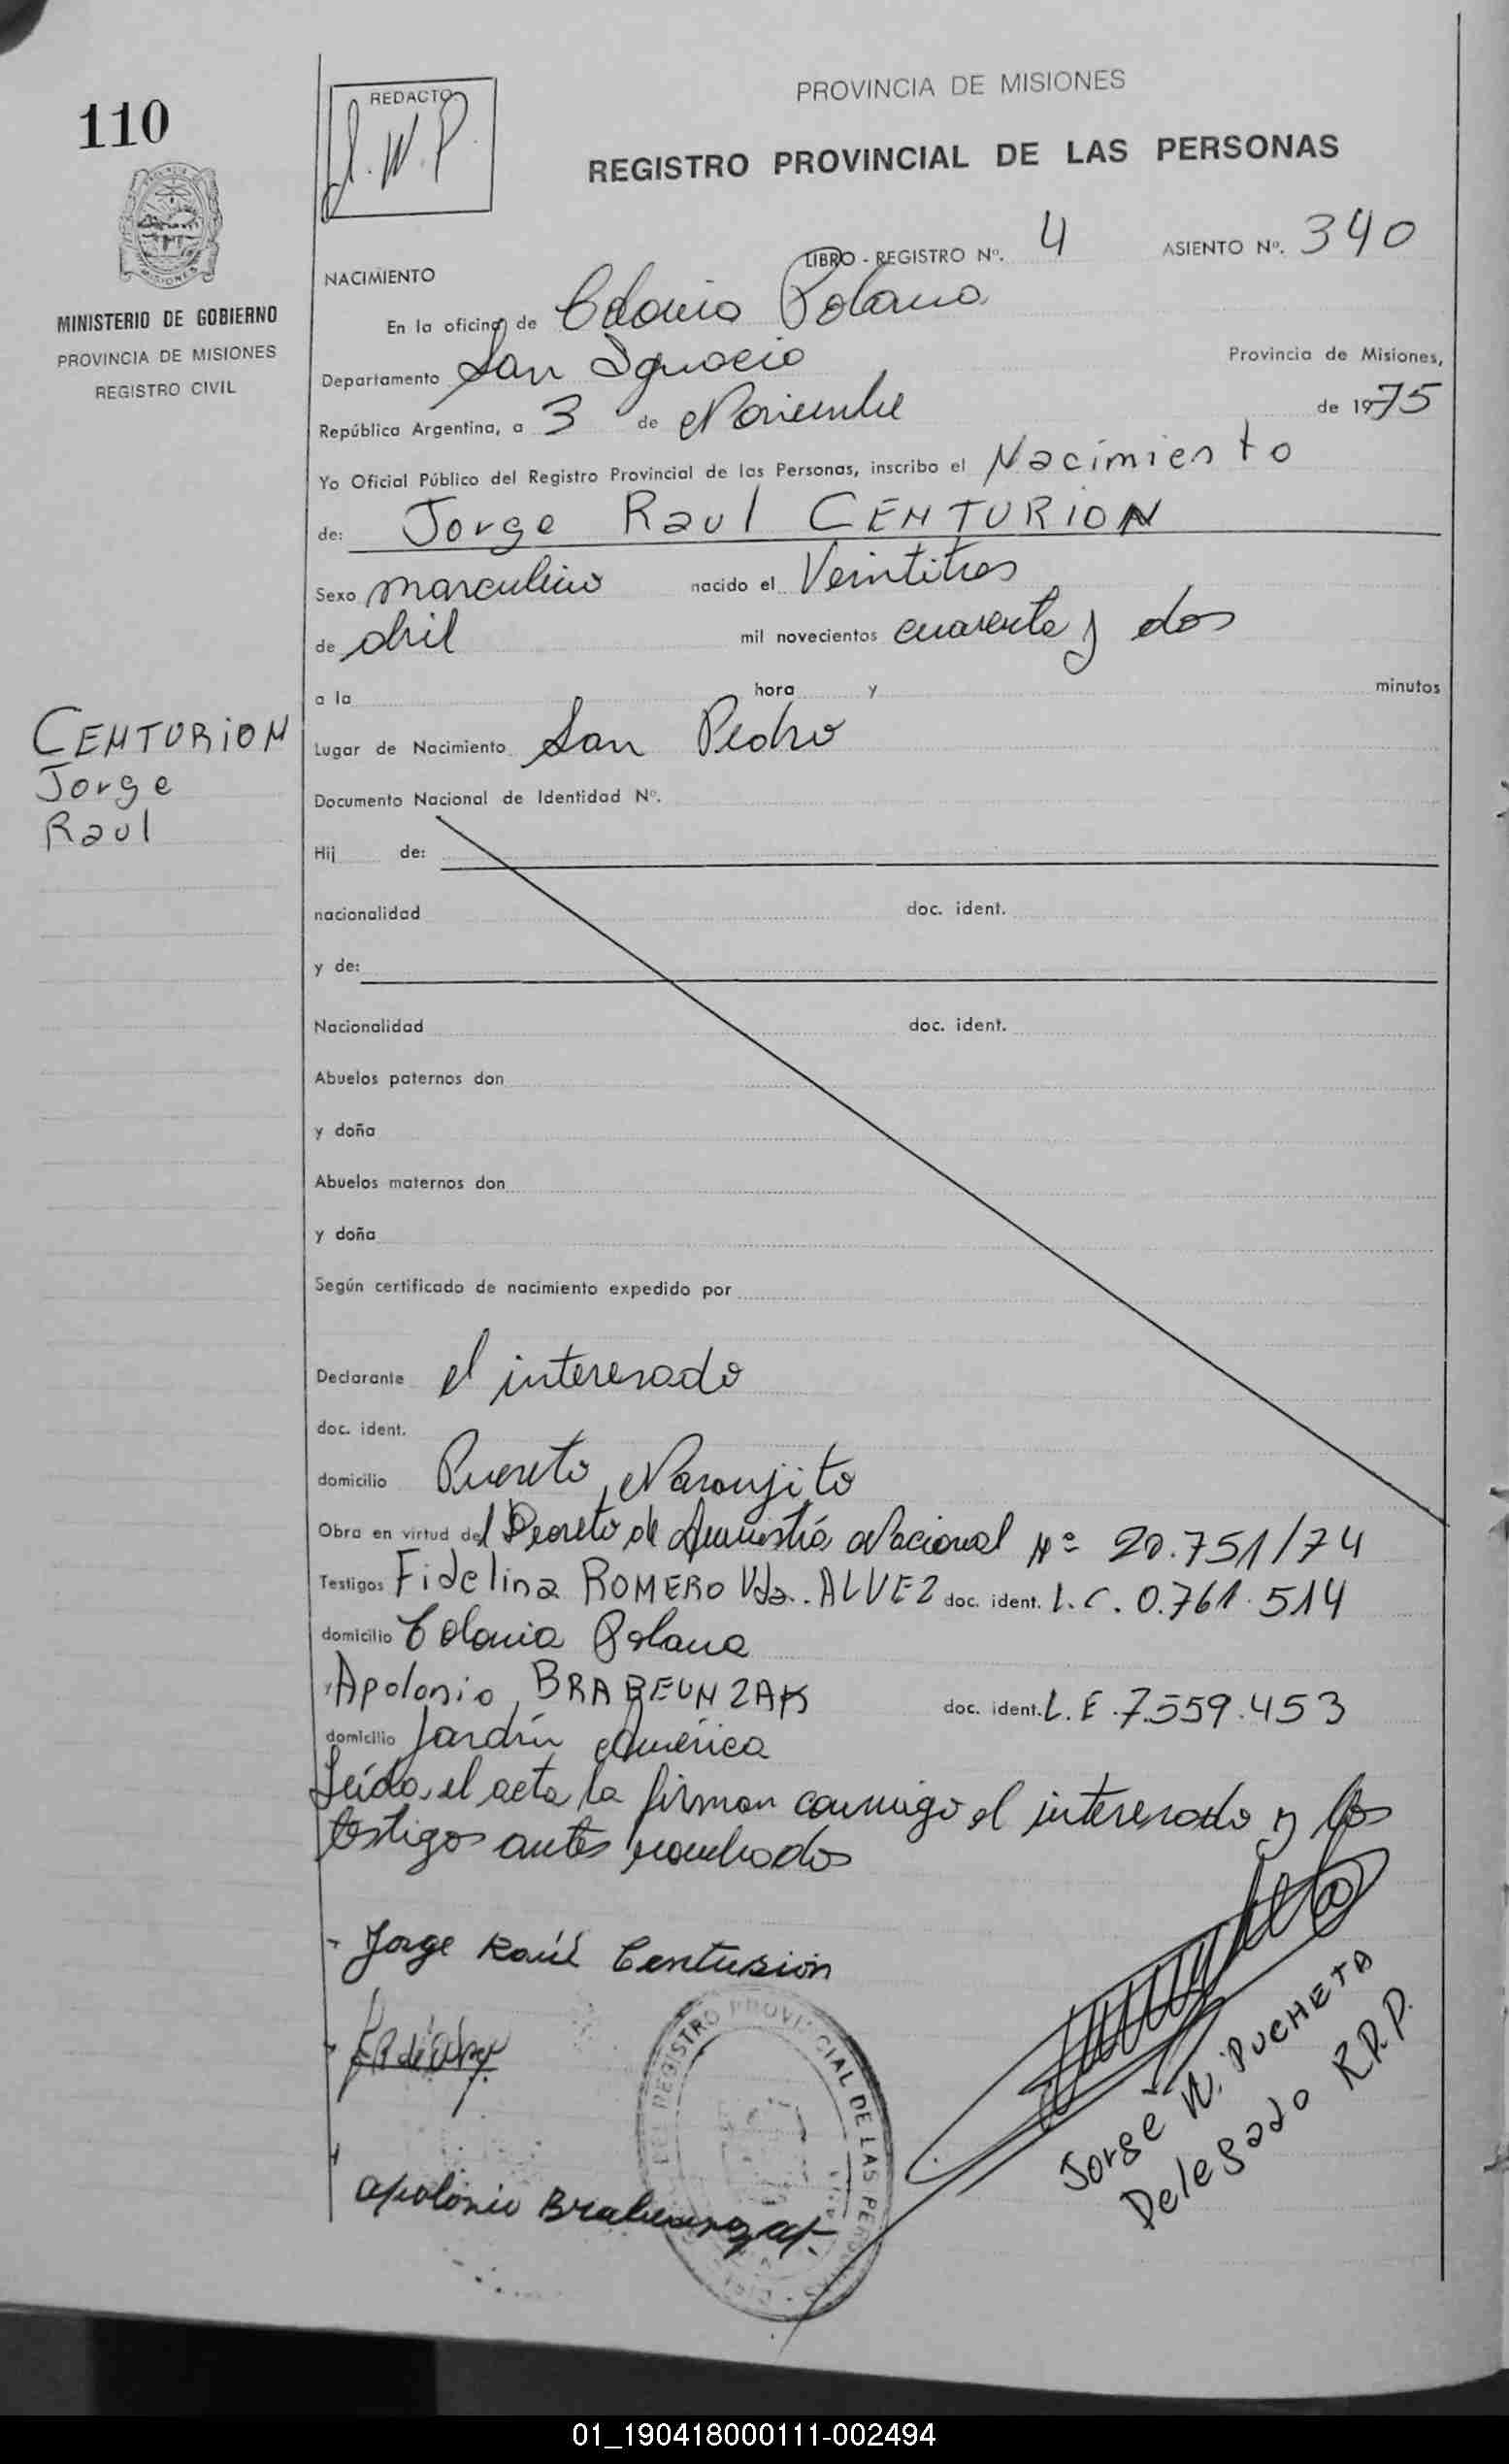 110
REDACTO
J.W.P.
PROVINCIA DE MISIONES
REGISTRO PROVINCIAL DE LAS PERSONAS
MISIONES
MINISTERIO DE GOBIERNO
PROVINCIA DE MISIONES
REGISTRO CIVIL
LIBRO - REGISTRO Nº. 4 ASIENTO Nº. 340
NACIMIENTO
En la oficina de Colonia Polana
Departamento San Ignacio Provincia de Misiones,
República Argentina, a 3 de Noviembre de 1975
Yo Oficial Público del Registro Provincial de las Personas, inscribo el Nacimiento
de: Jorge Raul CENTURION
Sexo masculino nacido el Veintitres
de abril mil novecientos cuarenta y dos
a la hora y minutos
CENTURION
Jorge
Raul
Lugar de Nacimiento San Pedro
Documento Nacional de Identidad Nº.
Hij de:
nacionalidad doc. ident.
y de:
Nacionalidad doc. ident.
Abuelos paternos don
y doña
Abuelos maternos don
y doña
Según certificado de nacimiento expedido por
Declarante el interesado
doc. ident.
domicilio Puerto Naranjito
Obra en virtud del Decreto de Amnistía Nacional Nº 20.751/74
Testigos Fidelina ROMERO Vda. ALVEZ doc. ident. L.C. 0.761.514
domicilio Colonia Polana
Apolonio BRABEUNZAK doc. ident. L.E. 7.559.453
domicilio Jardín América
Leída el acta la firman conmigo el interesado y los
testigos antes nombrados
Jorge Raúl Centurión
Apolonio
REGISTRO PROVINCIAL DE LAS PERSONAS
Jorge W. PUCHETA
Delegado R.P.P.
01_190418000111-002494